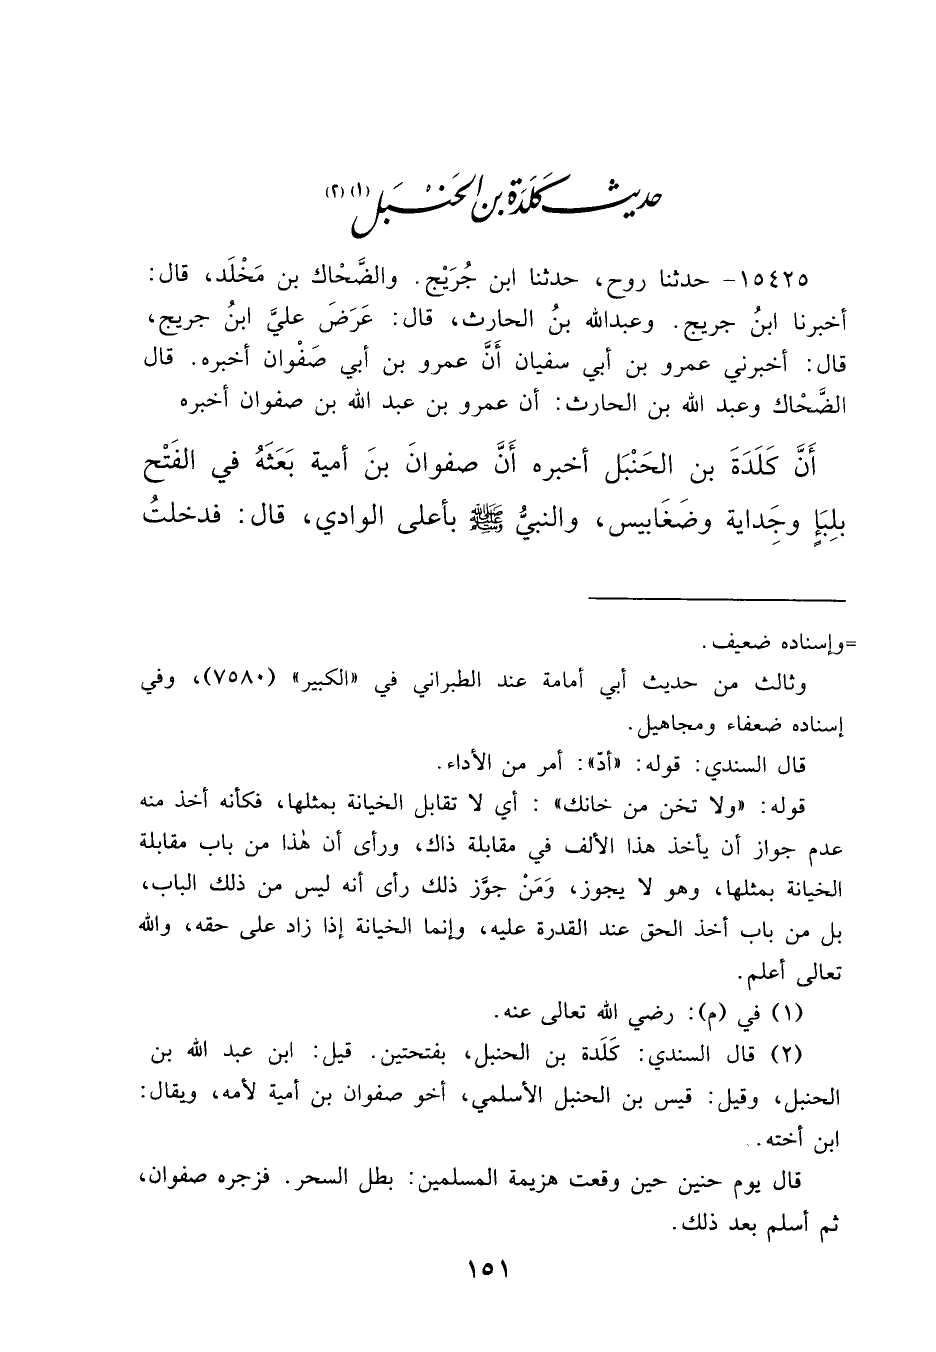 حديث كَلَدَة بن الحَنْبَل (١) (٢)
١٥٤٢٥- حدثنا روح، حدثنا ابن جُرَيْج. والضَّحْاك بن مَخْلَد، قال:
أخبرنا ابنُ جريج. وعبدالله بنُ الحارث، قال: عَرَضَ عليَّ ابنُ جريج،
قال: أخبرني عمرو بن أبي سفيان أَنَّ عمرو بن أبي صَفْوان أخبره. قال
الضَّحْاك وعبد الله بن الحارث: أن عمرو بن عبد الله بن صفوان أخبره
أَنَّ كَلَدَةَ بن الحَنْبَل أخبره أَنَّ صفوانَ بنَ أمية بَعَثَهُ في الفَتْح
بلِبَإٍ وجَِداية وضَغَابيس، والنبيُّ ﷺ بأعلى الوادي، قال: فدخلتُ
=وإسناده ضعيف.
وثالث من حديث أبي أمامة عند الطبراني في «الكبير» (٧٥٨٠)، وفي
إسناده ضعفاء ومجاهيل.
قال السندي: قوله: «أدّ»: أمر من الأداء.
قوله: «ولا تخن من خانك» : أي لا تقابل الخيانة بمثلها، فكأنه أخذ منه
عدم جواز أن يأخذ هذا الألف في مقابلة ذاك، ورأى أن هٰذا من باب مقابلة
الخيانة بمثلها، وهو لا يجوز، وَمَنْ جوَّز ذلك رأى أنه ليس من ذلك الباب،
بل من باب أخذ الحق عند القدرة عليه، وإنما الخيانة إذا زاد على حقه، والله
تعالى أعلم.
(١) في (م): رضي الله تعالى عنه.
(٢) قال السندي: كَلَدة بن الحنبل، بفتحتين. قيل: ابن عبد الله بن
الحنبل، وقيل: قيس بن الحنبل الأسلمي، أخو صفوان بن أمية لأمه، ويقال:
ابن أخته.
قال يوم حنين حين وقعت هزيمة المسلمين: بطل السحر. فزجره صفوان،
ثم أسلم بعد ذلك.
١٥١